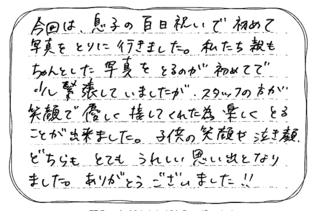 今回は、息子の百日祝いで初めて
写真をとりに行きました。私たち親も
ちゃんとした写真をとるのが初めてで
少し緊張していましたが、スタッフの方が
笑顔で優しく接してくれた為楽しくとる
ことが出来ました。子供の笑顔や泣き顔、
どちらもとてもうれしい思い出となり
ました。ありがとうございました!!